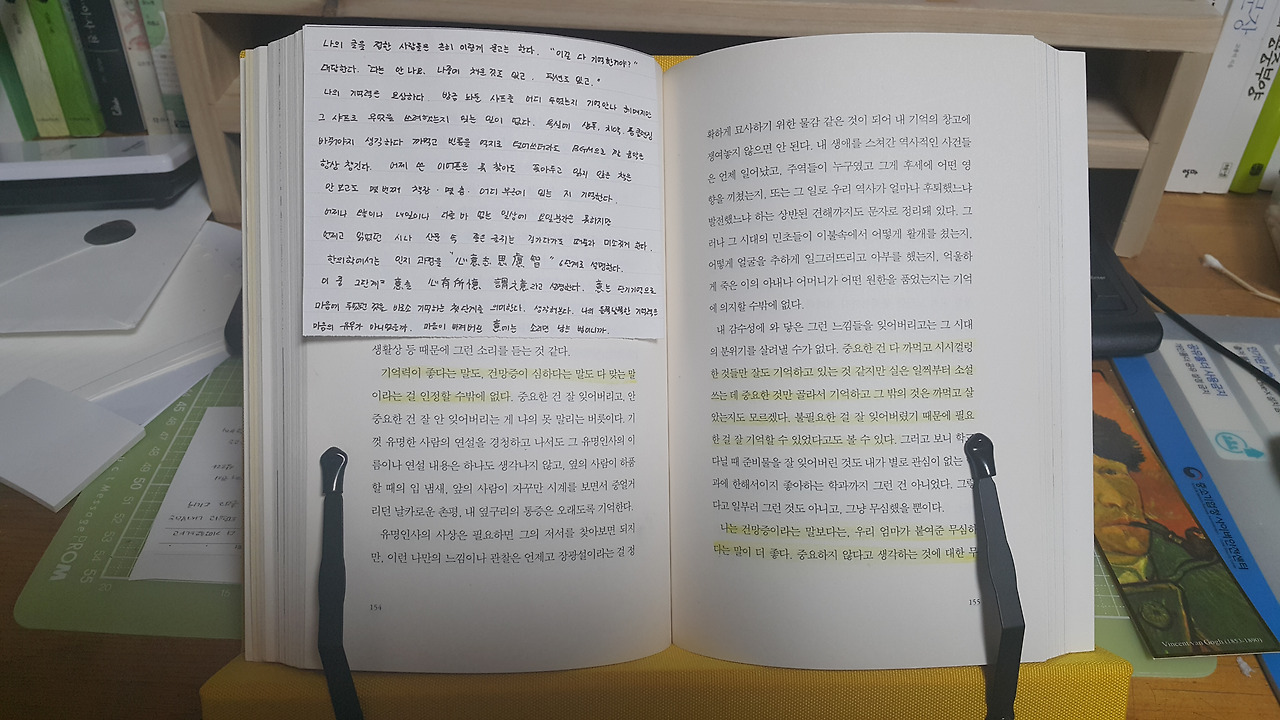 나의 글을 접한 사람들은 흔히 이렇게 묻고는 한다. "이걸 다 기억한거야?"
대답한다. "나는 안 나요. 나중에 채운 것도 있고, 픽션도 있고."
나의 기억력은 요상하다. 방금 봐둔 샤프를 어디 두었는지 기억 안나 헤매지만
그 샤프로 무엇을 쓰려했는지 잊는 일이 없다.
항상 챙긴다.
안 보고도 몇 번째 책장, 몇 층, 어디 부근에 있는 지 기억한다.
언제고 읽었던 시나 산문 속 좋은 글귀는 길가다가도 떠올라 미소짓게 한다.
한의학에서는 인지 과정을 "心意志思慮智" 6단계로 설명한다.
이 중 2단계 意를 心有所憶 謂之意라고 설명한다. 意는 단기기억으로
마음에 두었던 것을 비로소 기억하는 첫 단계를 의미한다. 생각해본다. 나의 기억력은
마음의 유무가 아니었을까. 마음이 버려버린 意에는 소리도 남는 법이니까.
생활상 등 때문에 그런 소리를 듣는 것 같다.
기억력이 좋다는 말도, 건망증이 심하다는 말도 다 맞는 말
이라는 걸 인정할 수밖에 없다. 중요한 건 잘 잊어버리고, 안
중요한 건 잘 안 잊어버리는 게 나의 못 말리는 버릇이다. 기
껏 유명한 사람의 연설을 경청하고 나서도 그 유명인사의 이
름이나 연설 내용은 하나도 생각나지 않고, 옆의 사람이 하품
할 때의 입 냄새, 앞의 사람이 자꾸만 시계를 보면서 중얼거
리던 날카로운 촌평, 내 옆구리의 통증은 오래도록 기억한다.
유명인사의 사상은 필요하면 그의 저서를 찾아보면 되지
만, 이런 나만의 느낌이나 관찰은 언제고 장광설이라는 걸 정
154
확하게 묘사하기 위한 물감 같은 것이 되어 내 기억의 창고에
쟁여놓지 않으면 안 된다. 내 생애를 스쳐간 역사적인 사건들
은 언제 일어났고, 주역들이 누구였고 그게 후세에 어떤 영
향을 끼쳤는지, 또는 그 일로 우리 역사가 얼마나 후퇴했느냐
발전했느냐 하는 상반된 견해까지도 문자로 정리돼 있다. 그
러나 그 시대의 민초들이 이불속에서 어떻게 활개를 쳤는지,
어떻게 얼굴을 추하게 일그러뜨리고 아부를 했는지, 억울하
게 죽은 이의 아내나 어머니가 어떤 원한을 품었는지는 기억
에 의지할 수밖에 없다.
내 감수성에 와 닿은 그런 느낌들을 잊어버리고는 그 시대
의 분위기를 살려낼 수가 없다. 중요한 건 다 까먹고 시시껄렁
한 것들만 잘도 기억하고 있는 것 같지만 실은 일찍부터 소설
쓰는 데 중요한 것만 골라서 기억하고 그 밖의 것은 까먹고 살
았는지도 모르겠다. 불필요한 걸 잘 잊어버렸기 때문에 필요
한 걸 잘 기억할 수 있었다고도 볼 수 있다. 그러고 보니 학교
다닐 때 준비물을 잘 잊어버린 것도 내가 별로 관심이 없는
과에 한해서이지 좋아하는 학과까지 그런 건 아니었다. 그렇
다고 일부러 그런 것도 아니고, 그냥 무심했을 뿐이다.
나는 건망증이라는 말보다는, 우리 엄마가 붙여준 무심하
다는 말이 더 좋다. 중요하지 않다고 생각하는 것에 대한 무
155
Vincent van Gogh (1853-1890)
PROM